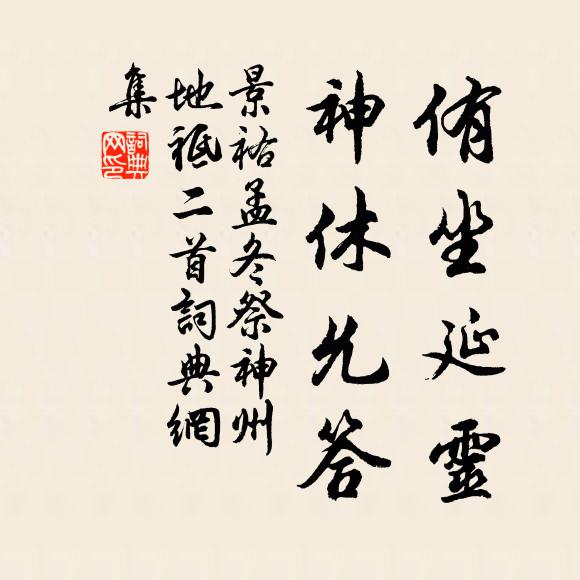 侑坐延靈
神休允答
景祐孟冬祭神州
地祗二首詞典網
集
詞典
网印